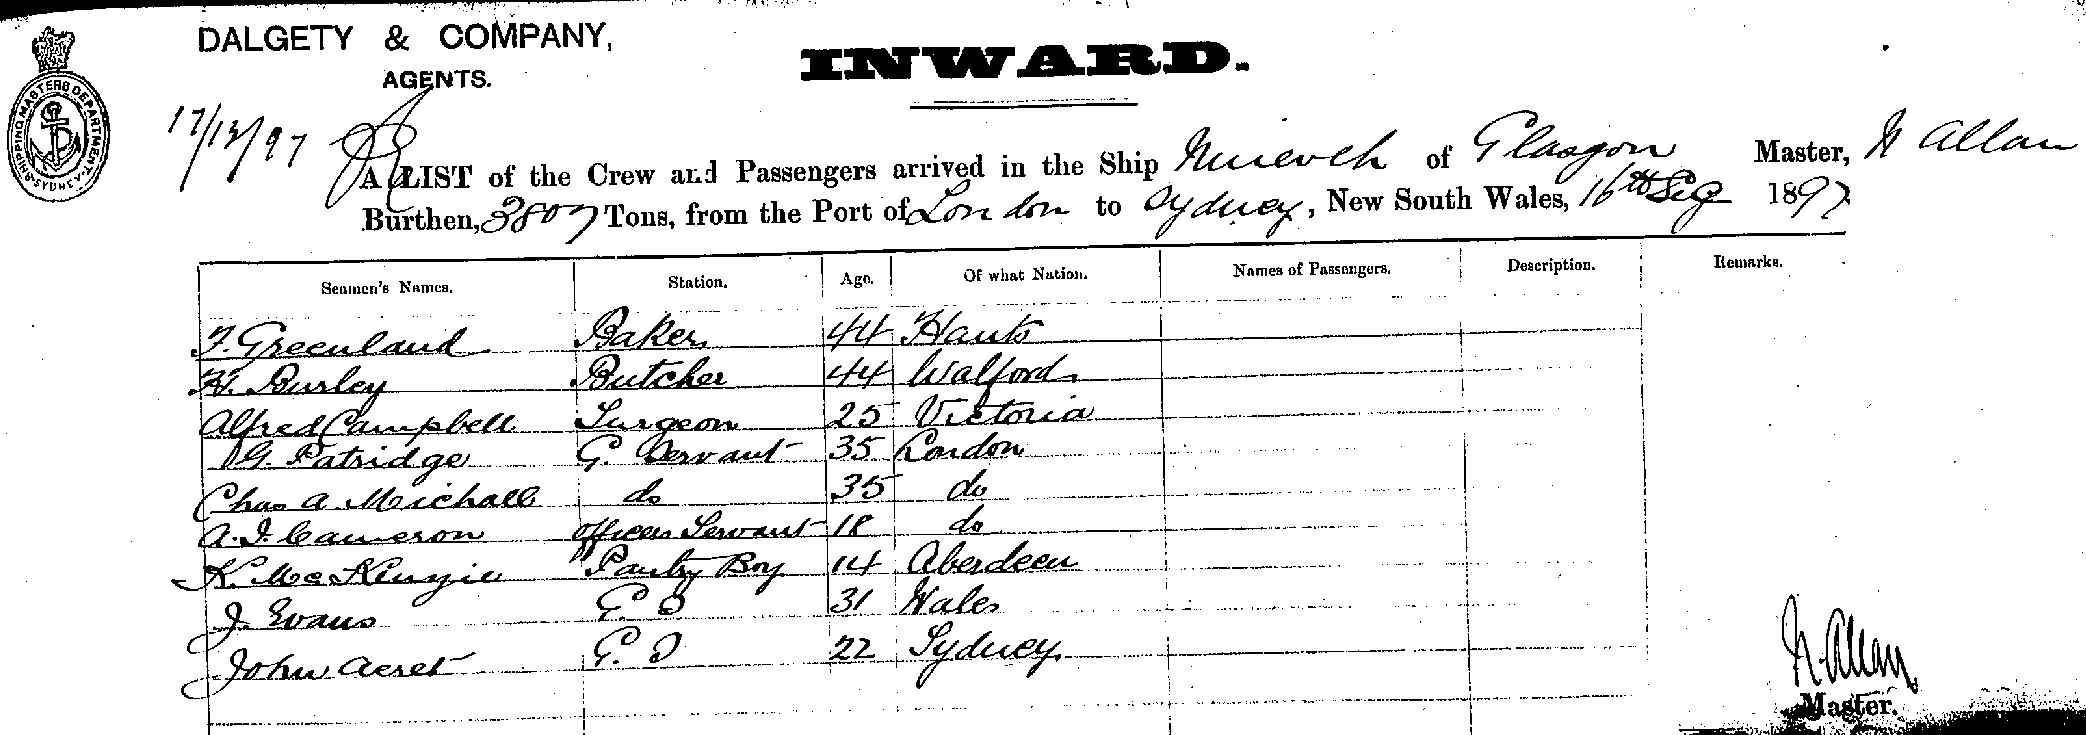 DALGETY & COMPANY,
AGENTS.
INWARD.
SHIPPING MASTERS DEPARTMENT
SYDNEY
17/12/97
A LIST of the Crew and Passengers arrived in the Ship of Glasgow Master, N Allan
Burthen, 3807 Tons, from the Port of London to Sydney, New South Wales, 16th 1897
Seamen's Names. Station. Age. Of what Nation. Names of Passengers. Description. Remarks.
Greenland Baker 44 Hants
H. Burley Butcher 44 Walford
Alfred Campbell Surgeon 25 Victoria
G. Patridge G. Servant 35 London
Chas A Michall do 35 do
A. J. Cameron Officers Servant 18 do
K. McKenzie Pantry Boy 14 Aberdeen
J. Evans G. S 31 Wales
John Acret G. S 22 Sydney
N. Allan
Master.